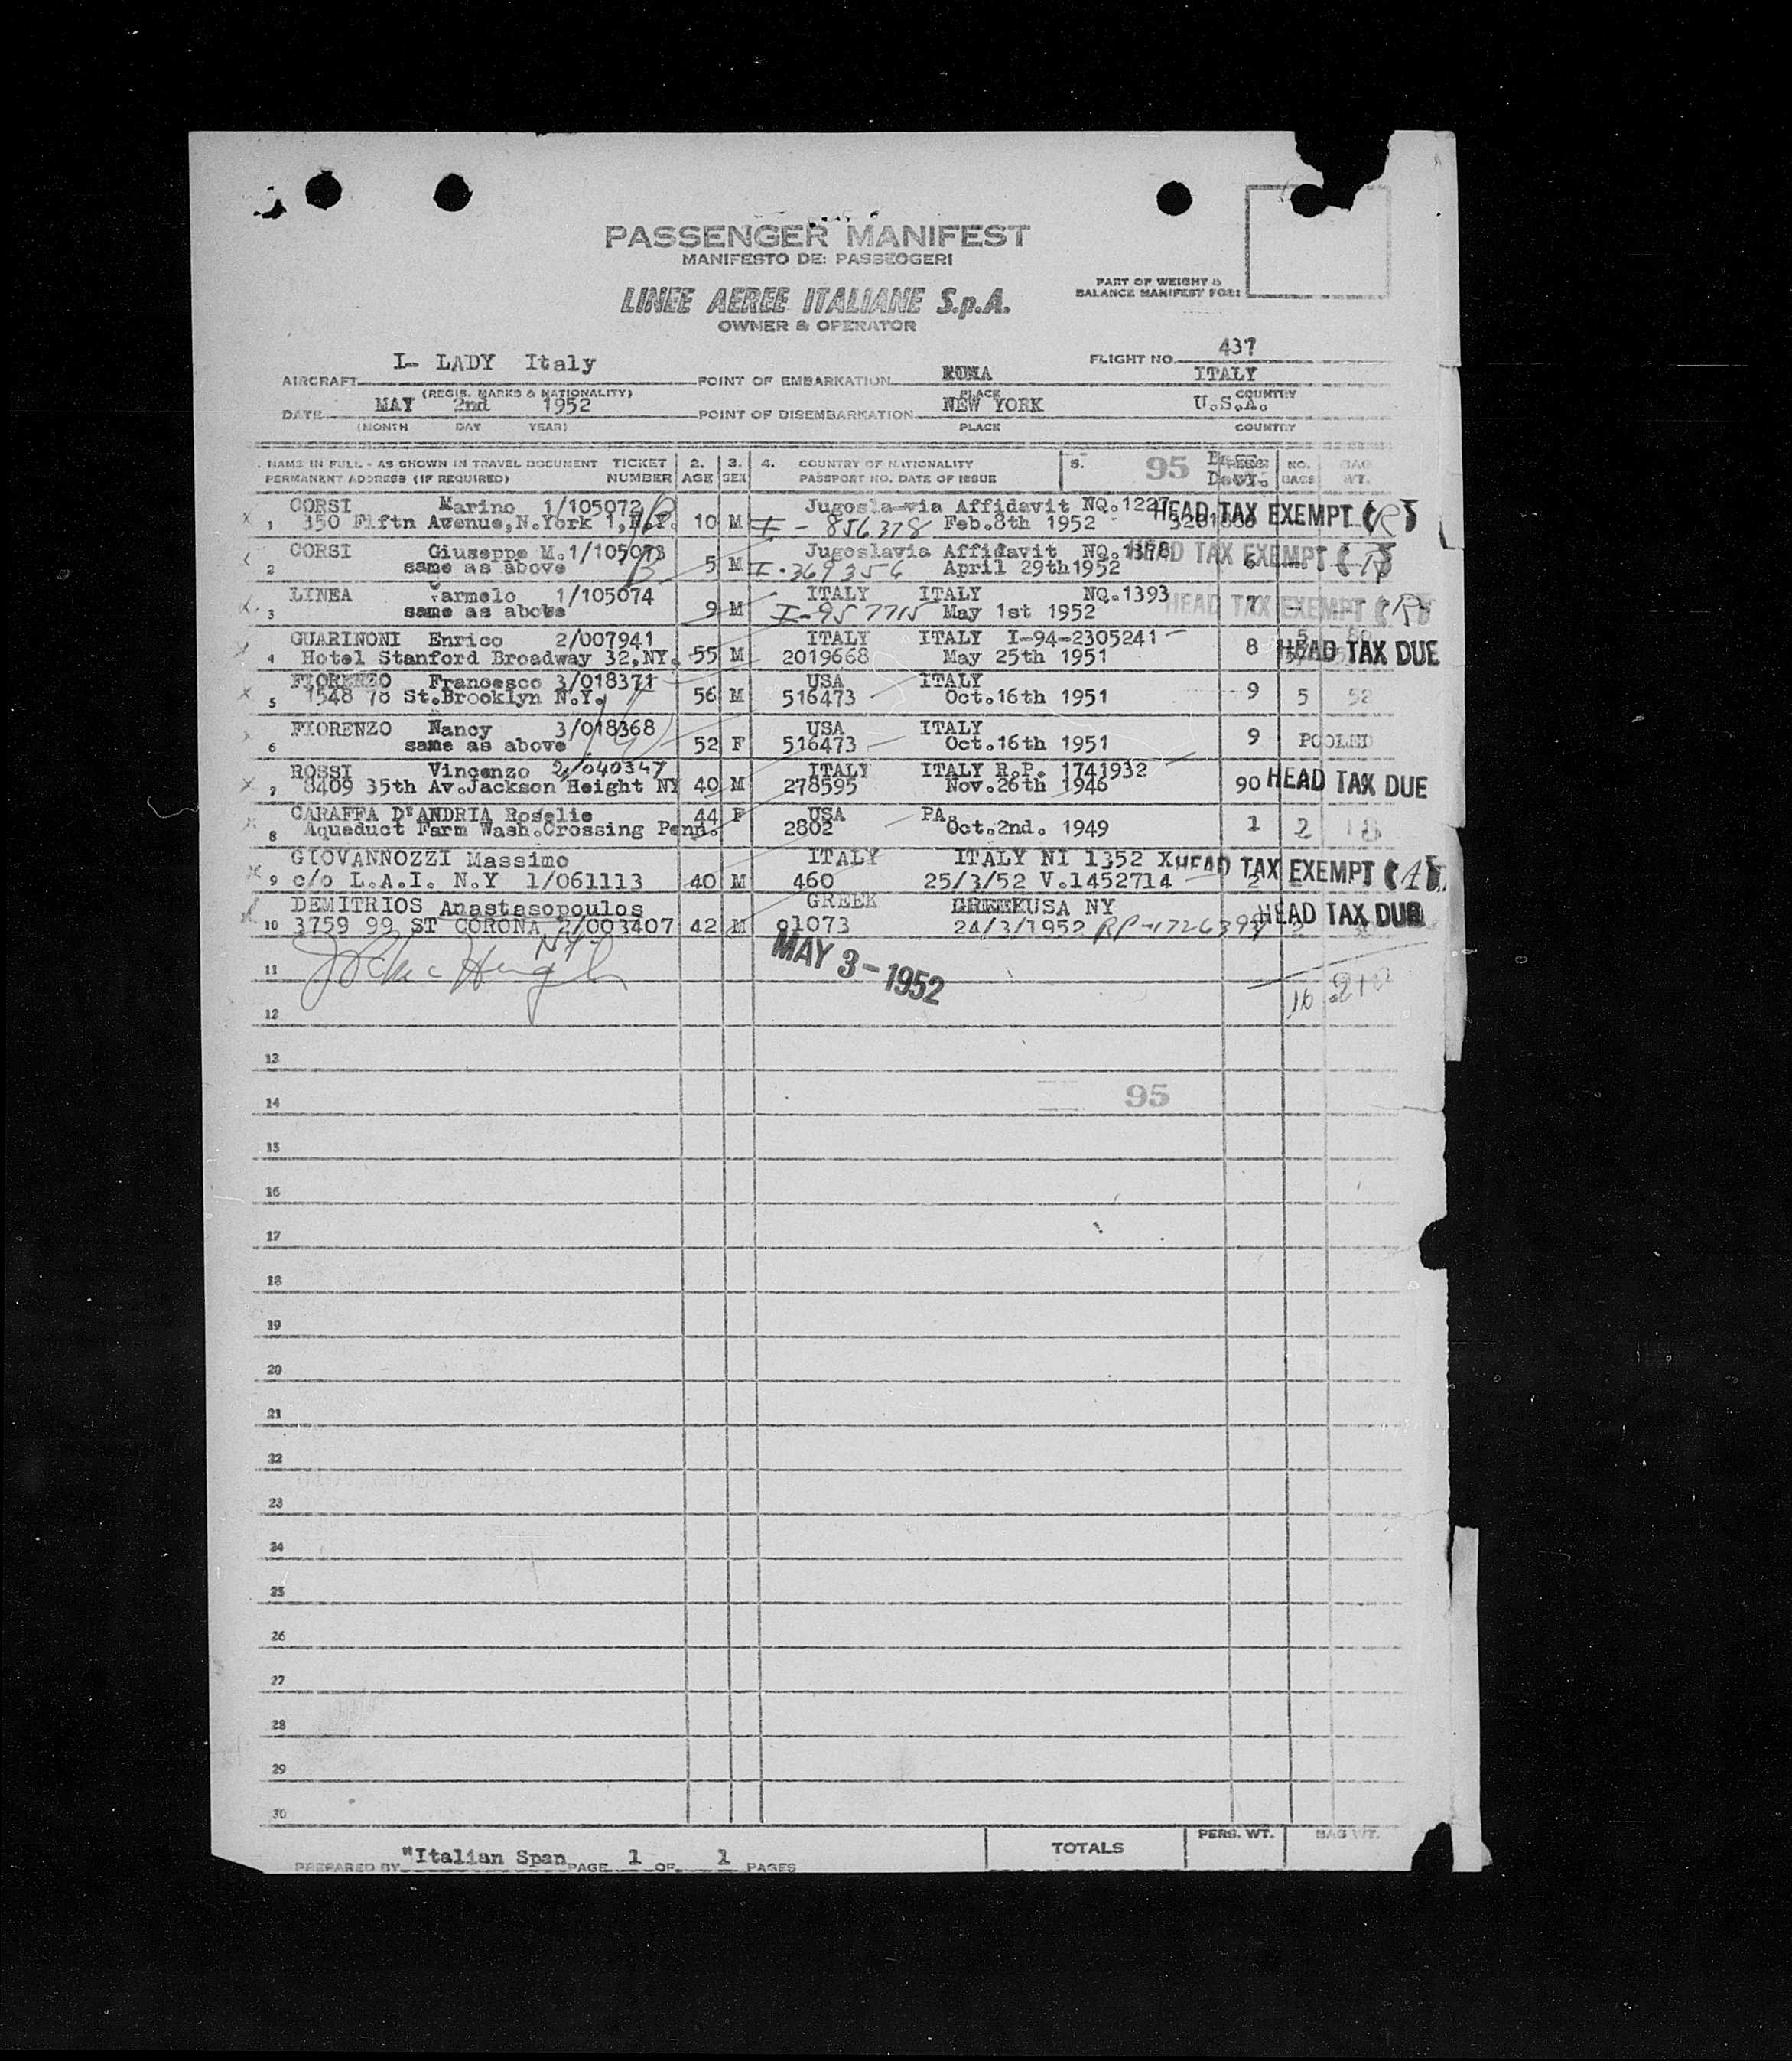 PASSENGER MANIFEST
MANIFESTO DEI PASSEGGERI
LINEE AEREE ITALIANE S.p.A.
OWNER & OPERATOR
PART OF WEIGHT &
BALANCE MANIFEST FOR:
FLIGHT NO. 437
AIRCRAFT I- LADY Italy POINT OF EMBARKATION ROMA ITALY
(REGIS. MARKS & NATIONALITY) PLACE COUNTRY
DATE MAY 2nd 1952 POINT OF DISEMBARKATION NEW YORK U.S.A.
(MONTH DAY YEAR) PLACE COUNTRY
1. NAME IN FULL - AS SHOWN IN TRAVEL DOCUMENT TICKET 2. 3. 4. COUNTRY OF NATIONALITY 5. 95 NO. BAG
PERMANENT ADDRESS (IF REQUIRED) NUMBER AGE SEX PASSPORT NO. DATE OF ISSUE BAGS WT.
CORSI Marino 1/105072 Jugosla-via Affidavit NQ.1227 HEAD TAX EXEMPT (R)
1 350 Fiftn Avenue,N.York 1,N.Y. 10 M I - 856378 Feb.8th 1952
CORSI Giuseppe M.1/105073 Jugoslavia Affidavit NQ.1378 HEAD TAX EXEMPT (R)
2 same as above 5 M I-369356 April 29th1952 6
LINEA Carmelo 1/105074 ITALY ITALY NQ.1393 HEAD TAX EXEMPT (R)
3 same as above 9 M I-957715 May 1st 1952 7
GUARINONI Enrico 2/007941 ITALY ITALY I-94-2305241 5 80
4 Hotel Stanford Broadway 32,NY. 55 M 2019668 May 25th 1951 8 HEAD TAX DUE
FIORENZO Francesco 3/018371 USA ITALY
5 1548 78 St.Brooklyn N.Y. 56 M 516473 Oct.16th 1951 9 5 52
FIORENZO Nancy 3/018368 USA ITALY
6 same as above 52 F 516473 Oct.16th 1951 9 POOLED
ROSSI Vincenzo 2/040347 ITALY ITALY R.P. 1741932
7 8409 35th Av.Jackson Height NY 40 M 278595 Nov.26th 1946 90 HEAD TAX DUE
CARAFFA D'ANDRIA Roselie 44 F USA PA.
8 Aqueduct Farm Wash.Crossing Penn. 2802 Oct.2nd. 1949 1 2 18
GIOVANNOZZI Massimo ITALY ITALY NI 1352 X HEAD TAX EXEMPT (A)
9 c/o L.A.I. N.Y 1/061113 40 M 460 25/3/52 V.1452714 2
DEMITRIOS Anastasopoulos GREEK USA NY HEAD TAX DUE
10 3759 99 ST CORONA 2/003407 42 M 91073 24/3/1952 RP-1726394 2
N.Y.
MAY 3-1952
11
16 210
12
13
14 95
15
16
17
18
19
20
21
22
23
24
25
26
27
28
29
30
PREPARED BY "Italian Span PAGE 1 OF 1 PAGES TOTALS PERS. WT. BAG WT.